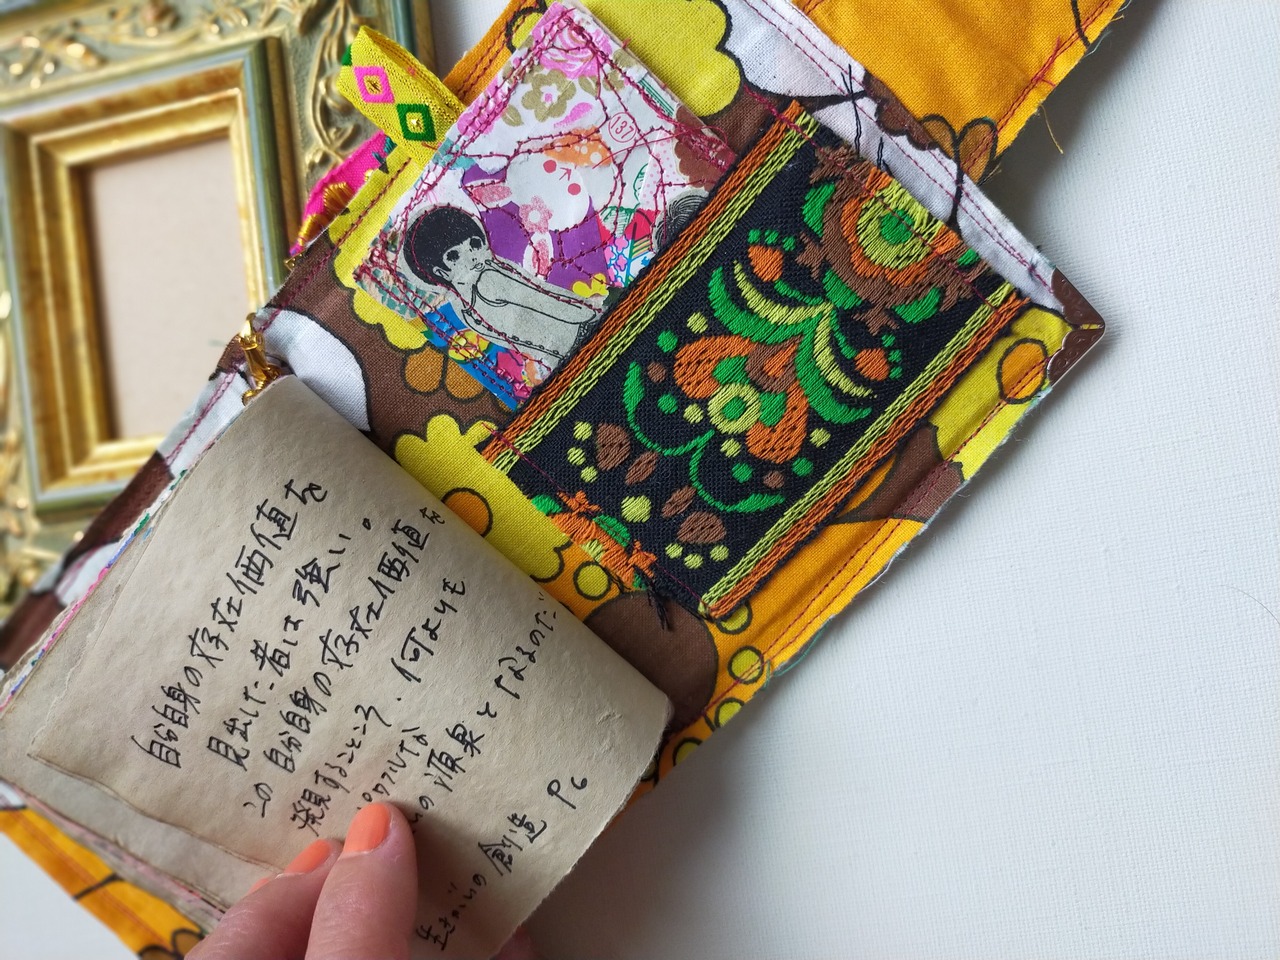 自分自身の存在価値を
見出した者は強い。
この自分自身の存在価値を
発見することこそ、何よりも
パワフルな
の源泉となるのだ
生きがいの創造 P6
137